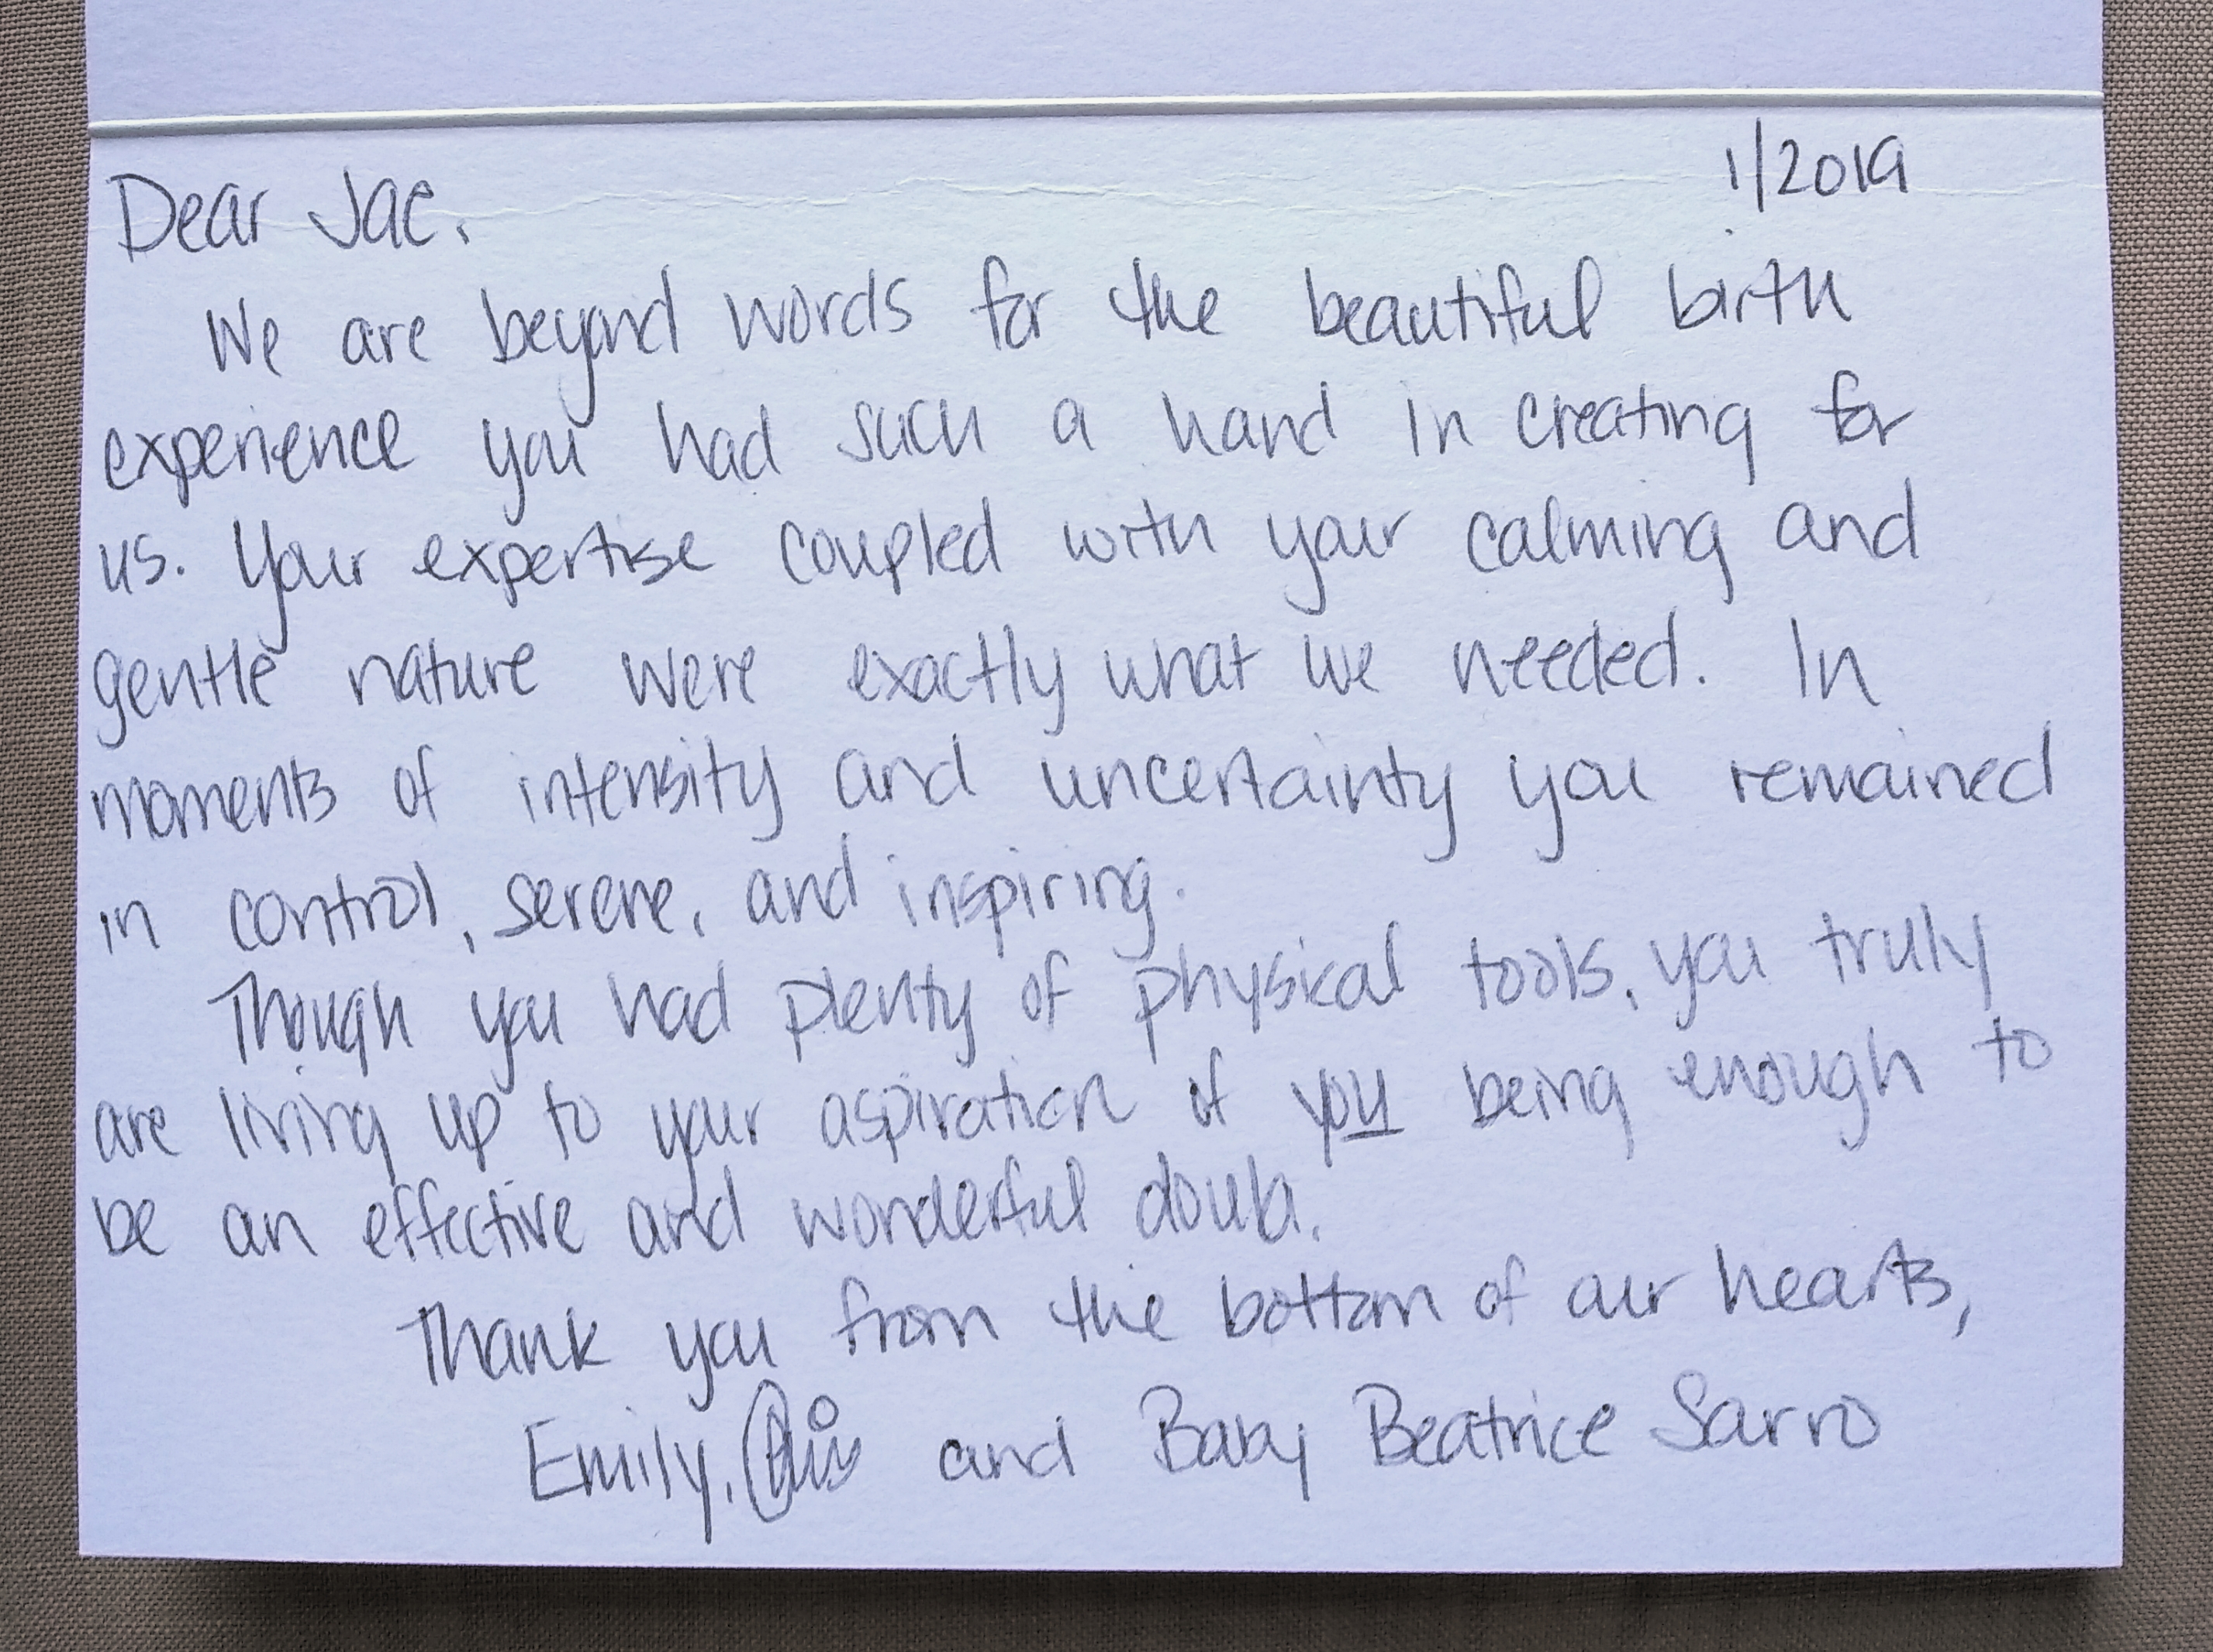 1/2019
Dear Jae,
We are beyond words for the beautiful birth
experience you had such a hand in creating for
us. Your expertise coupled with your calming and
gentle nature were exactly what we needed. In
moments of intensity and uncertainty you remained
in control, serene, and inspiring.
Though you had plenty of physical tools, you truly
are living up to your aspiration of you being enough to
be an effective and wonderful doula.
Thank you from the bottom of our hearts,
Emily, and Baby Beatrice Sarro